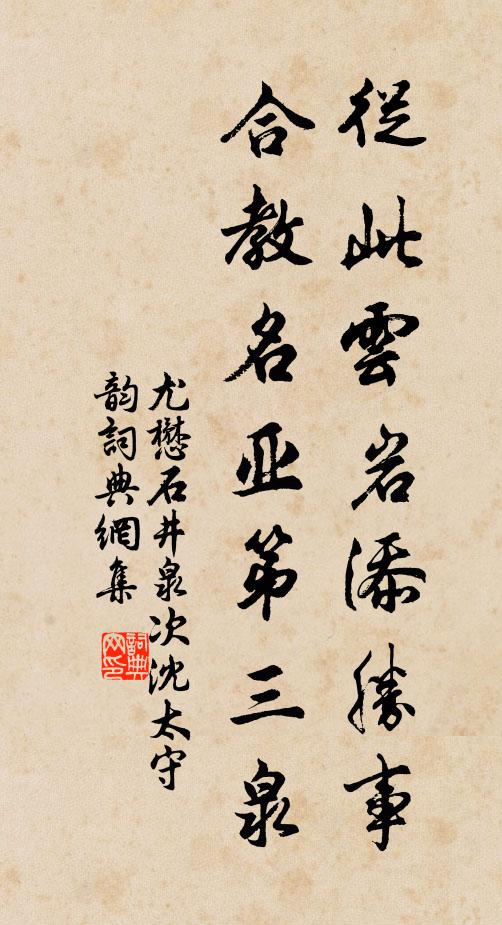 從此雲岩添勝事
合教名亚第三泉
尤懋石井泉次沈太守
韵詞典網集
詞典网印